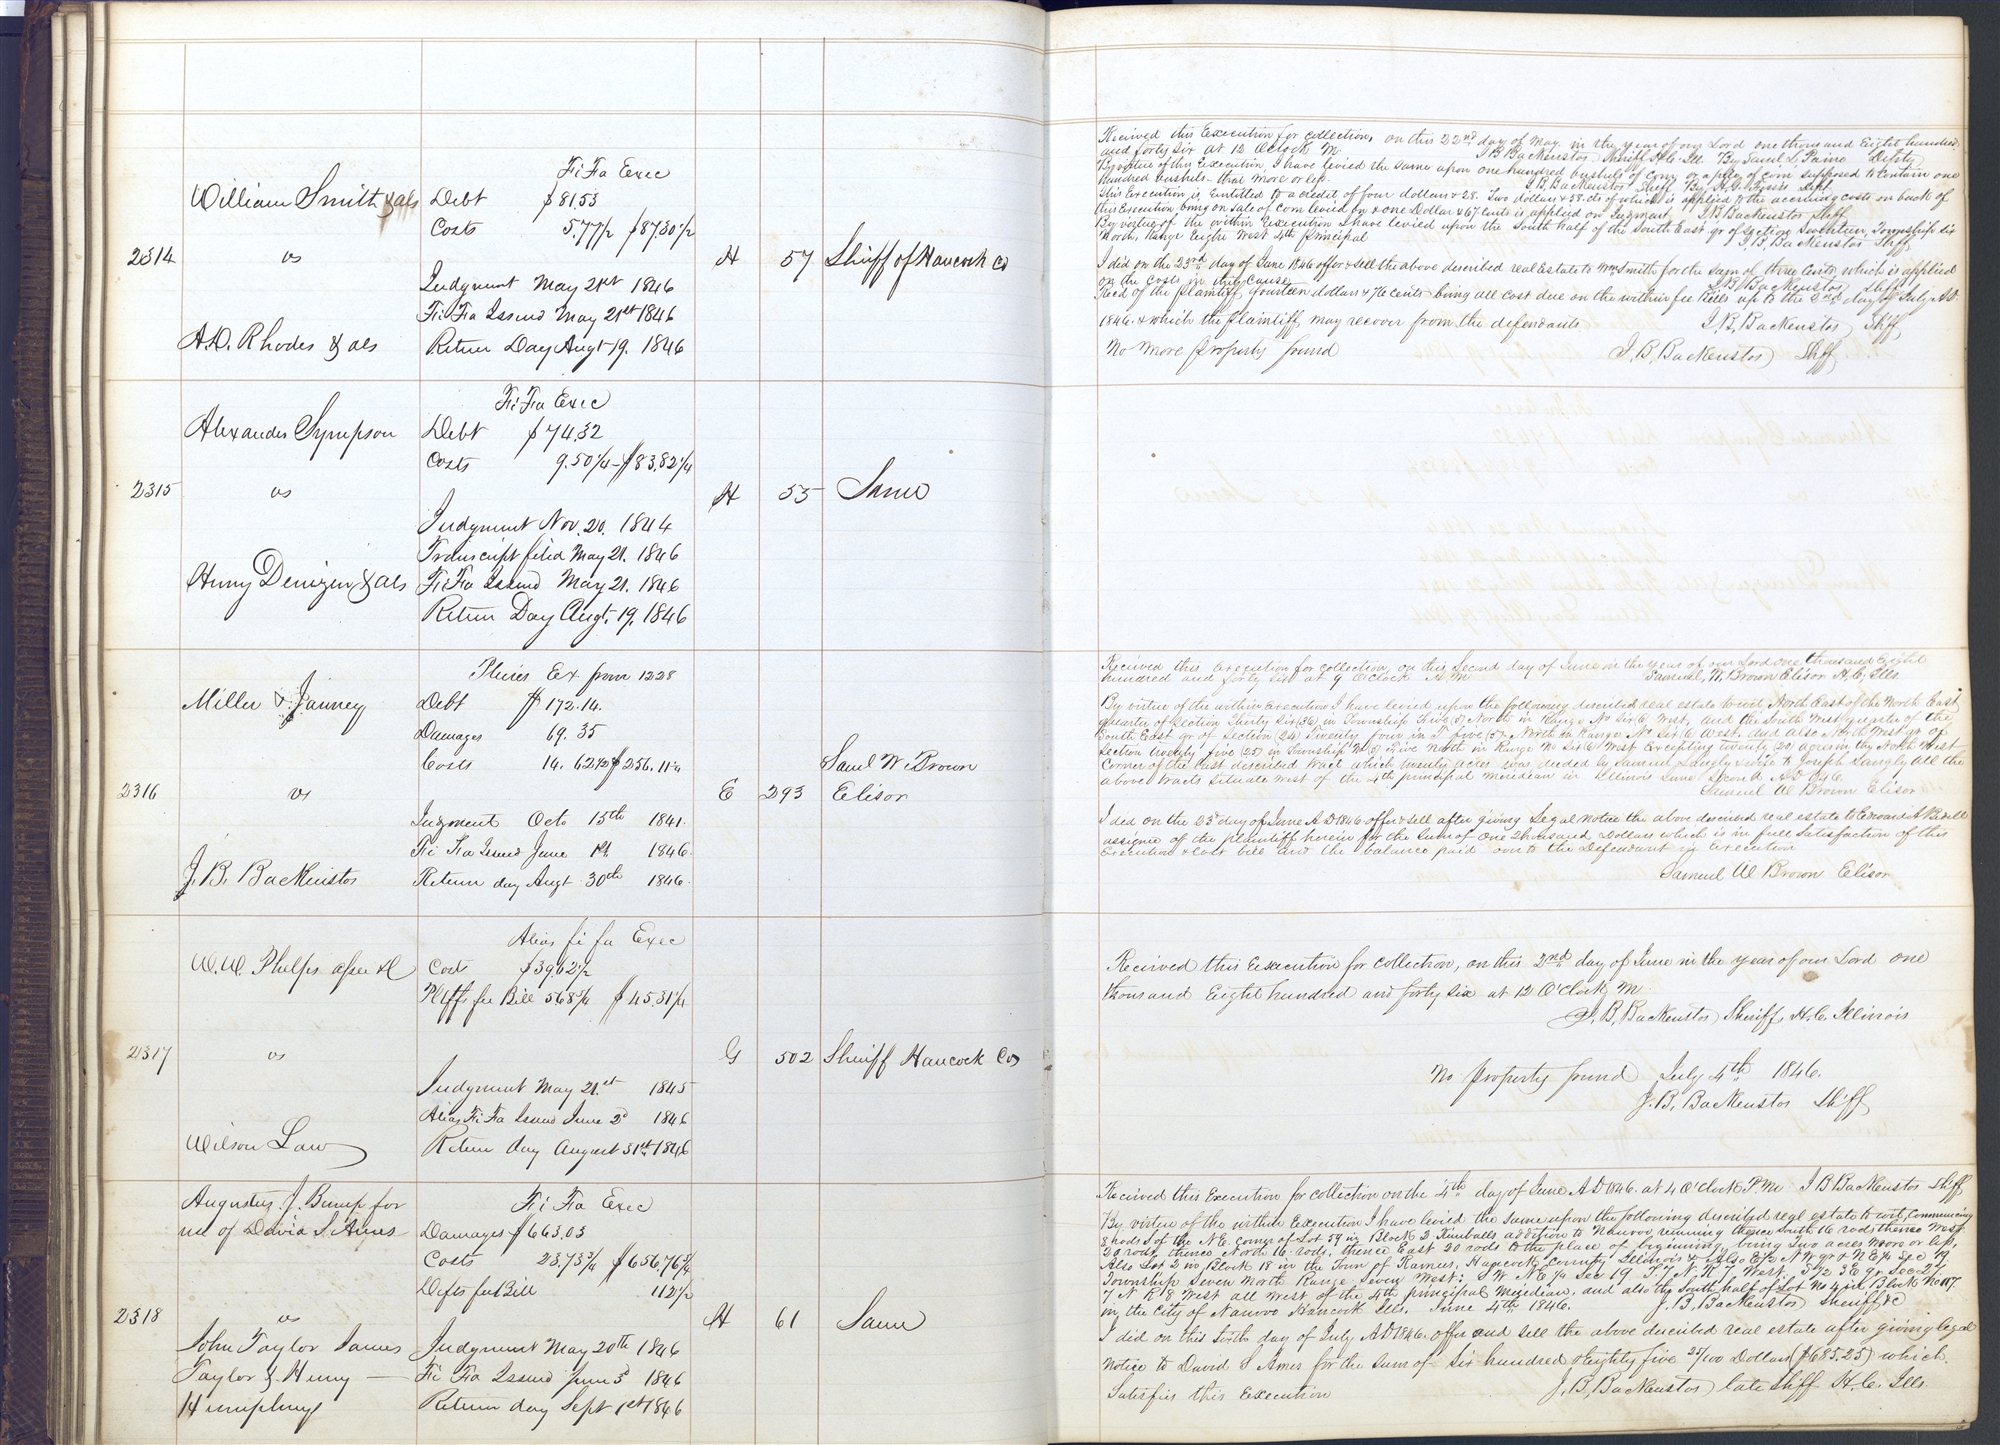 Fi Fa Exec
William Smith & als Debt $81.53
Costs 5.77 1/2 $87.30 1/2
2314 vs H 57 Shiriff of Hancock Co
Judgment May 21st 1846
Fi Fa Issued May 21st 1846
A.D. Rhodes & als Return Day Augt 19. 1846
Fi Fa Exec
Alexander Sympson Debt $74.32
Costs 9.50 1/4 - $83.82 1/4
2315 vs H 55 Same
Judgment Nov. 20. 1844
Transcript filed May 21. 1846
Henry Denizen & als Fi Fa Issued May 21. 1846
Return Day Augt. 19, 1846
Plures Ex from 1228
Miller & Janney Debt $172.14.
Damages 69.35
Costs 14.62 1/2 $256.11 1/2
Saml W. Brown
2316 vs E 293 Elisor
Judgment Octo 15th 1841.
Fi Fa Issued June 1st 1846.
J. B. Backenstos Return day Augt 30th 1846.
Alias fi fa Exec
W. W. Phelps assee &c Costs $39.62 1/2
Pltffs fee Bill 5.68 3/4 $45.31 1/4
2317 vs G 502 Shiriff Hancock Co
Judgment May 21st 1845
Alias Fi Fa Issued June 2d 1846
Wilson Law Return day August 31st 1846
Augustus J. Bump for Fi Fa Exec
use of David S. Ames Damages $663.03
Costs 23.73 3/4 $656.76 3/4
Defts fee Bill 1 12 1/2
2318 vs H 61 Same
John Taylor James Judgment May 20th 1846
Taylor & Henry Fi Fa Issued June 3d 1846
Humphrey Return day Sept 1st 1846
Recived this Execution for collection, on this 22nd day of May in the year of our Lord one thousand Eight hundred
and forty six at 12 Oclock M. J B Backenstos Shiriff H.C. Ill By Saml L. Paine Deputy
By virtue of this Execution I have levied the same upon one hundred bushels of corn, or a pile of corn supposed to contain one
hundred bushels - that more or less. J. B. Backenstos Shff By Dept
this Execution is Entitled to a credit of four dollars & 28. Two dollars & 38. cts of which is applied to the accruing costs on back of
this Execution being on sale of Corn levied by & one Dollar & 67 cents is applied on Judgment J B Backenstos Shff
By virtue of the within Execution I have levied upon the South half of the South East qr of section Seventeen, Township six
North, Range Eight West 4th principal J. B. Backenstos Shff
I did on the 23rd day of June 1846 offer & sell the above described real Estate to Wm Smith for the sum of three Cents which is applied
on the costs in this cause J. B. Backenstos Shff
Recd of the Plaintiff fourteen dollars & 76 cents being all cost due on the within fee Bills up to the 2nd day of July A.D.
1846. & which the plaintiff may recover from the defendants J. B. Backenstos Shff
No more property found J. B. Backenstos Shff
Recived this Execution for collection, on this Second day of June in the year of our Lord one thousand Eight
hundred and forty six at 9 O'Clock A.M Samuel, W. Brown Elisor H. C, Ills.
By virtue of the within Execution I have levied upon the following discribed real estate to wit, North East of the North East
quarter of Section Thirty six (36) in Township five (5) North in Range No Six (6) West, and the South West quarter of the
South East qr of Section (24) Twenty four in T five (5) North in Range No Six (6) West. and also North West qr of
Section twenty five (25) in Township No (5) Five North in Range No Six (6) West Excepting twenty (20) acres in the North West
Corner of the last described tract which twenty acres was deeded by Samuel Langly & wife to Joseph Langly all the
above tracts situate west of the 4th principal meridian in Illinois June Second A.D 1846.
Samuel W Brown Elisor
I did on the 23d day of June A D 1846 offer & sell after giving Legal notice the above described real estate to Edward A Bedell
assignee of the plaintiff herein for the sum of One Thousand Dollars which is in full satisfaction of this
Execution & Cost bill and the balance paid over to the Defendant in Execution
Samuel W Brown Elisor
Recived this Execution for collection, on this 2nd day of June in the year of our Lord one
thousand Eight hundred and forty six at 12 O'Clock M.
J. B, Backenstos Sheriff, H. C, Illinois
No property found July 4th 1846.
J. B. Backenstos Shff
Received this Execution for collection on the 4th day of June A.D 1846. at 4 O'Clock P.M. J B Backenstos Shff
By virtue of the within Execution I have levied the same upon the following discribed real estate to wit, Commencing
8 rods S of the N.E. corner of Lot 59 in Block 2 Kimballs addition to Nauvoo running thence South 16 rods, thence West
20 rods, thence North 16 rods, thence East 20 rods to the place of beginning, being Two acres more or less,
Also Lot 2 in Block 18 in the Town of Ramus, Hancock County Illinois & Also E 1/2 N W qr & N E 1/4 Sec 19
Township Seven North Range Seven West; S W N E 1/4 Sec 19 T 7 N R 7 West, S 1/2 S E qr Sec 27
7 N R 8 West all West of the 4th principal Meridean, and also the South half of Lot No 4 in Block No 117.
in the City of Nauvoo Hancock Ills. June 4th 1846. J. B. Backenstos Sheriff &c
I did on this sixth day of July A D 1846. offer and sell the above discribed real estate after giving legal
notice to David S Ames for the sum of Six hundred & Eighty five 25/100 Dollars ($685.25) which
Satisfies this Execution J. B, Backenstos late Shff H. C. Ills.